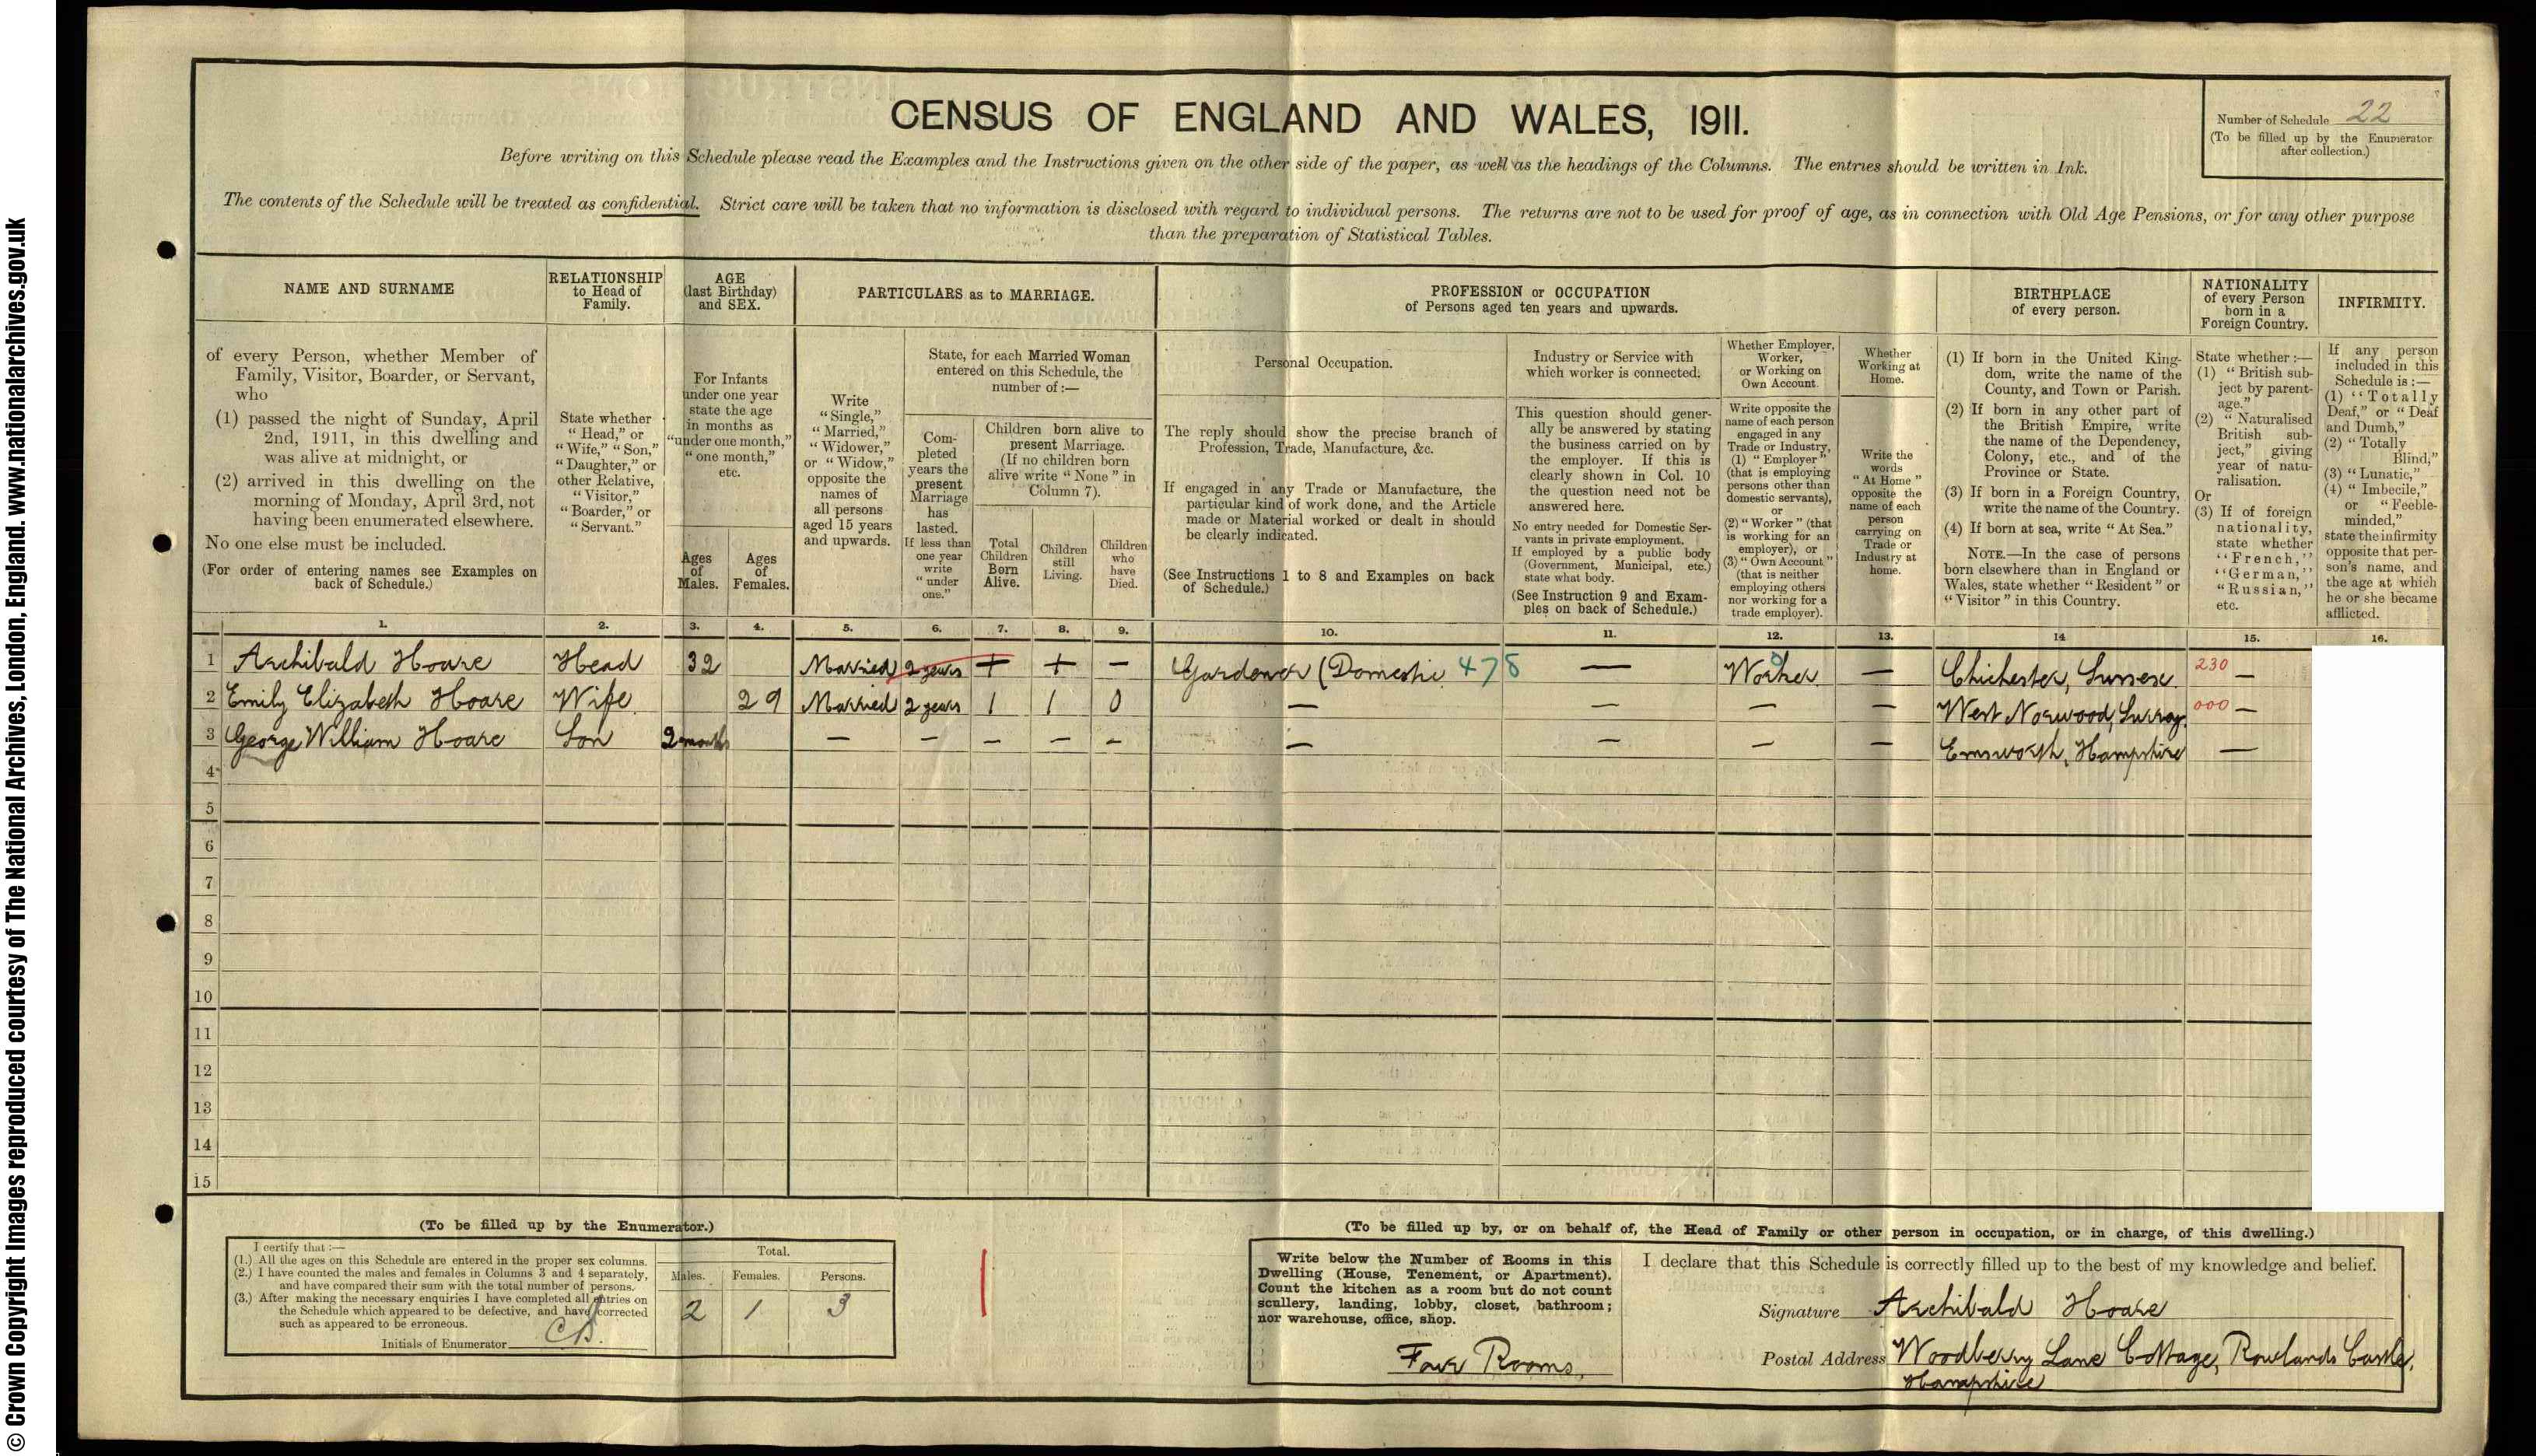 © Crown Copyright Images reproduced courtesy of The National Archives, London, England. www.nationalarchives.gov.uk
CENSUS OF ENGLAND AND WALES, 1911.
Number of Schedule 22
(To be filled up by the Enumerator
after collection.)
Before writing on this Schedule please read the Examples and the Instructions given on the other side of the paper, as well as the headings of the Columns. The entries should be written in Ink.
The contents of the Schedule will be treated as confidential. Strict care will be taken that no information is disclosed with regard to individual persons. The returns are not to be used for proof of age, as in connection with Old Age Pensions, or for any other purpose
than the preparation of Statistical Tables.
NAME AND SURNAME
of every Person, whether Member of
Family, Visitor, Boarder, or Servant,
who
(1) passed the night of Sunday, April
2nd, 1911, in this dwelling and
was alive at midnight, or
(2) arrived in this dwelling on the
morning of Monday, April 3rd, not
having been enumerated elsewhere.
No one else must be included.
(For order of entering names see Examples on
back of Schedule.)
RELATIONSHIP
to Head of
Family.
State whether
"Head," or
"Wife," "Son,"
"Daughter," or
other Relative,
"Visitor,"
"Boarder," or
"Servant."
AGE
(last Birthday)
and SEX.
For Infants
under one year
state the age
in months as
"under one month,"
"one month,"
etc.
Ages
of
Males.
Ages
of
Females.
PARTICULARS as to MARRIAGE.
Write
"Single,"
"Married,"
"Widower,"
or "Widow,"
opposite the
names of
all persons
aged 15 years
and upwards.
State, for each Married Woman
entered on this Schedule, the
number of:—
Com-
pleted
years the
present
Marriage
has
lasted.
If less than
one year
write
"under
one."
Children born alive to
present Marriage.
(If no children born
alive write "None" in
Column 7).
Total
Children
Born
Alive.
Children
still
Living.
Children
who
have
Died.
PROFESSION or OCCUPATION
of Persons aged ten years and upwards.
Personal Occupation.
The reply should show the precise branch of
Profession, Trade, Manufacture, &c.
If engaged in any Trade or Manufacture, the
particular kind of work done, and the Article
made or Material worked or dealt in should
be clearly indicated.
(See Instructions 1 to 8 and Examples on back
of Schedule.)
Industry or Service with
which worker is connected.
This question should gener-
ally be answered by stating
the business carried on by
the employer. If this is
clearly shown in Col. 10
the question need not be
answered here.
No entry needed for Domestic Ser-
vants in private employment.
If employed by a public body
(Government, Municipal, etc.)
state what body.
(See Instruction 9 and Exam-
ples on back of Schedule.)
Whether Employer,
Worker,
or Working on
Own Account.
Write opposite the
name of each person
engaged in any
Trade or Industry,
(1) "Employer"
(that is employing
persons other than
domestic servants),
or
(2) "Worker" (that
is working for an
employer), or
(3) "Own Account"
(that is neither
employing others
nor working for a
trade employer).
Whether
Working at
Home.
Write the
words
"At Home"
opposite the
name of each
person
carrying on
Trade or
Industry at
home.
BIRTHPLACE
of every person.
(1) If born in the United King-
dom, write the name of the
County, and Town or Parish.
(2) If born in any other part of
the British Empire, write
the name of the Dependency,
Colony, etc., and of the
Province or State.
(3) If born in a Foreign Country,
write the name of the Country.
(4) If born at sea, write "At Sea."
NOTE.—In the case of persons
born elsewhere than in England or
Wales, state whether "Resident" or
"Visitor" in this Country.
NATIONALITY
of every Person
born in a
Foreign Country.
State whether:—
(1) "British sub-
ject by parent-
age."
(2) "Naturalised
British sub-
ject," giving
year of natu-
ralisation.
Or
(3) If of foreign
nationality,
state whether
"French,"
"German,"
"Russian,"
etc.
INFIRMITY.
If any person
included in this
Schedule is:—
(1) "Totally
Deaf," or "Deaf
and Dumb,"
(2) "Totally
Blind,"
(3) "Lunatic,"
(4) "Imbecile,"
or "Feeble-
minded,"
state the infirmity
opposite that per-
son's name, and
the age at which
he or she became
afflicted.
1. 2. 3. 4. 5. 6. 7. 8. 9. 10. 11. 12. 13. 14 15. 16.
1 Archibald Hoare Head 32 Married 2 years + + — Gardener (Domestic 478 — Worker — Chichester, Sussex 230 —
2 Emily Elizabeth Hoare Wife 29 Married 2 years 1 1 0 — — — — West Norwood, Surrey. 000 —
3 George William Hoare Son 2 months — — — — — — — — — Emsworth, Hampshire —
4
5
6
7
8
9
10
11
12
13
14
15
(To be filled up by the Enumerator.)
I certify that:—
(1.) All the ages on this Schedule are entered in the proper sex columns.
(2.) I have counted the males and females in Columns 3 and 4 separately,
and have compared their sum with the total number of persons.
(3.) After making the necessary enquiries I have completed all entries on
the Schedule which appeared to be defective, and have corrected
such as appeared to be erroneous.
Initials of Enumerator
Total.
Males. Females. Persons.
2 1 3
(To be filled up by, or on behalf of, the Head of Family or other person in occupation, or in charge, of this dwelling.)
Write below the Number of Rooms in this
Dwelling (House, Tenement, or Apartment).
Count the kitchen as a room but do not count
scullery, landing, lobby, closet, bathroom;
nor warehouse, office, shop.
Four Rooms,
I declare that this Schedule is correctly filled up to the best of my knowledge and belief.
Signature Archibald Hoare
Postal Address Woodberry Lane Cottage, Rowlands Castle,
Hampshire